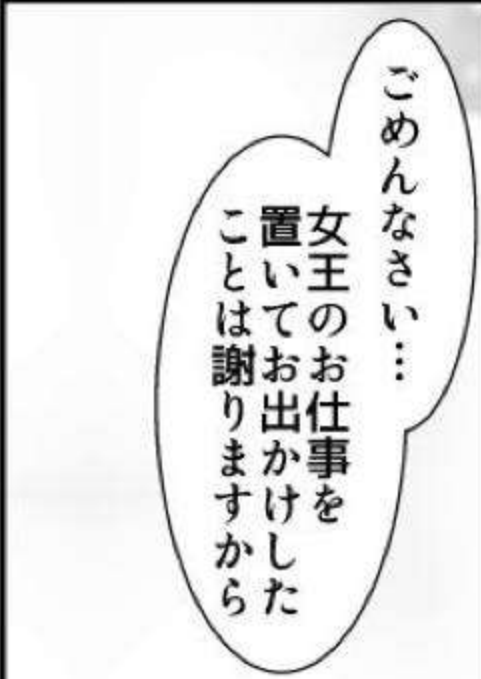 ごめんなさい…
女王のお仕事を
置いてお出かけした
ことは謝りますから